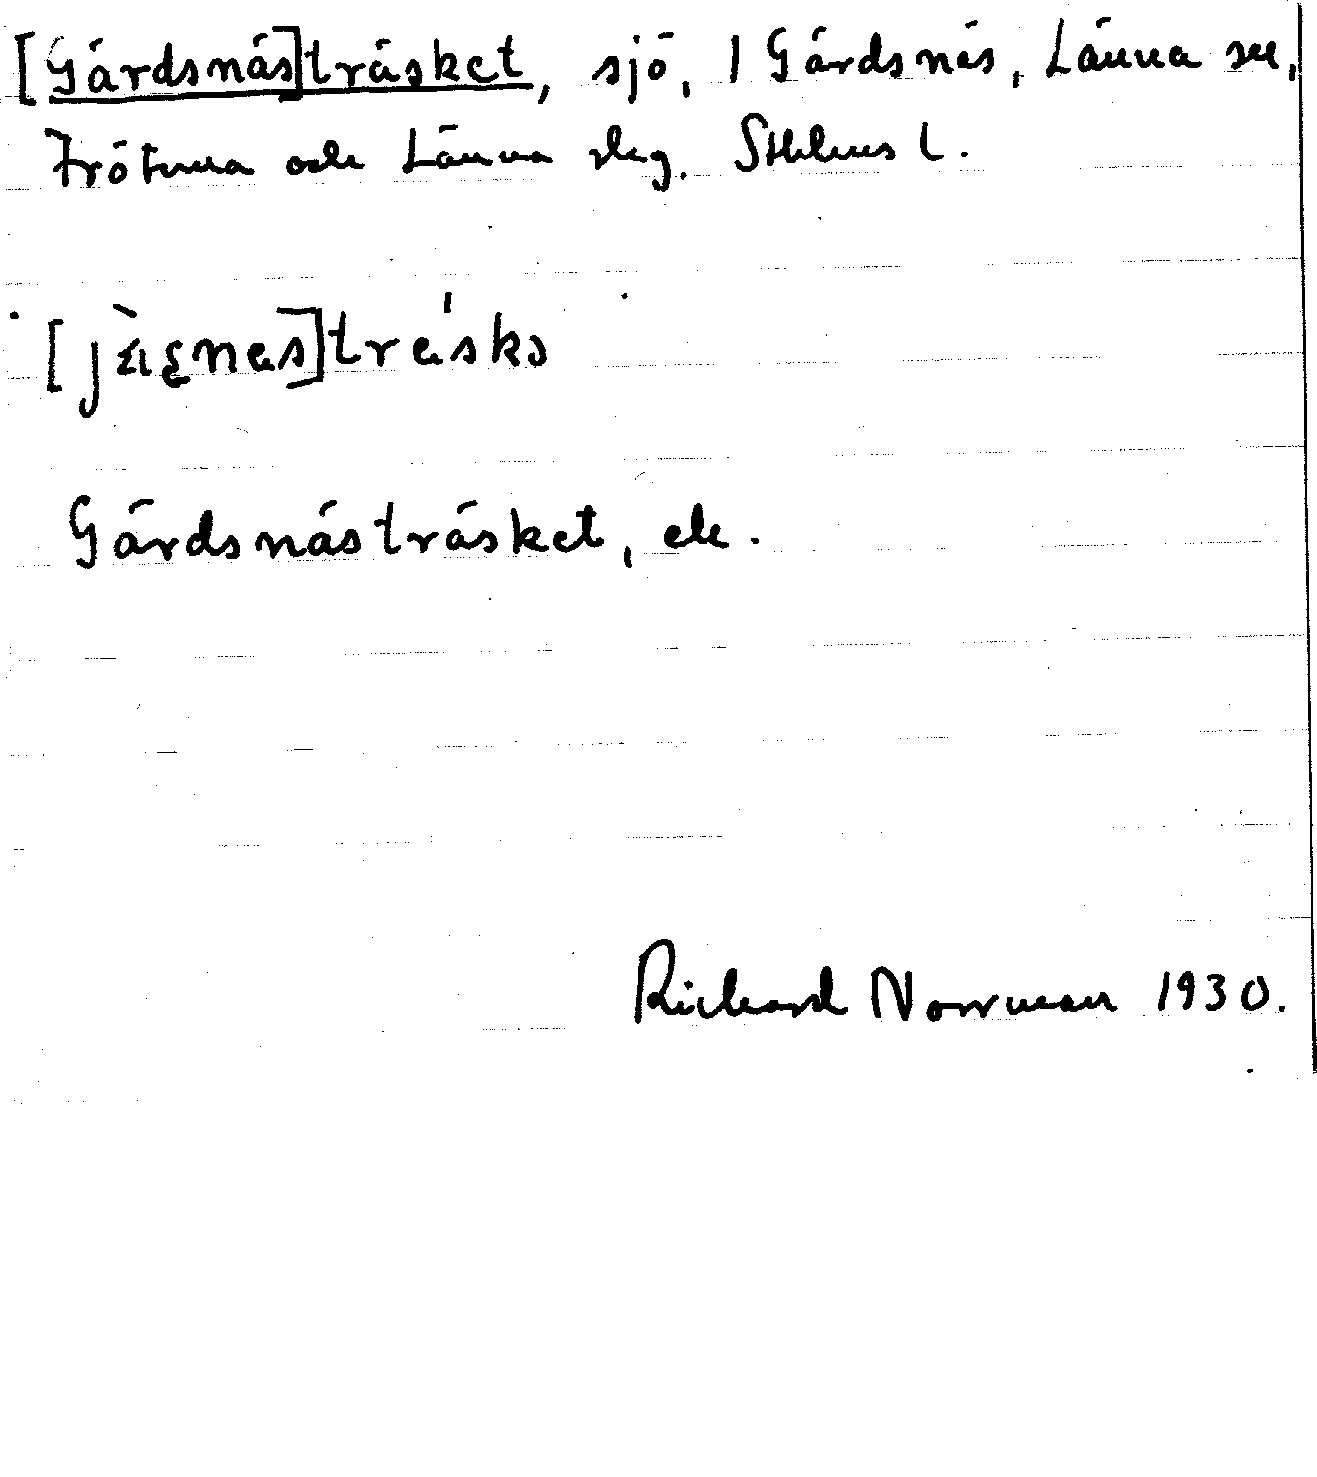 [Gärdsnäs]träsket, sjö, 1 Gärdsnäs, Länna sn,
Frötuna och Länna slag, Sthlms l.
[jæ̀ɾnəs]trésks
Gärdsnästräsket, ek.
Richard Norrman 1930.